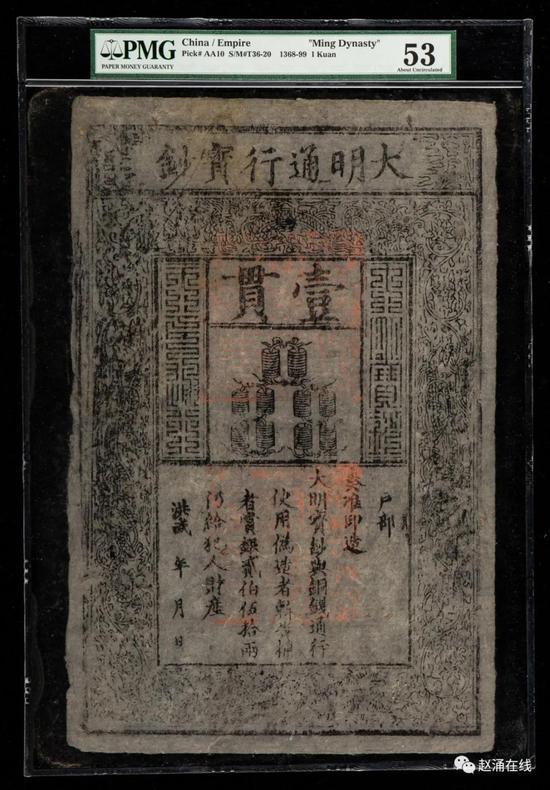 PMG
PAPER MONEY GUARANTY
China / Empire "Ming Dynasty"
Pick# AA10 S/M#T36-20 1368-99 1 Kuan
53
About Uncirculated
大明通行寶鈔
壹貫
戶部
奏准印造
大明寶鈔與銅錢通行
使用偽造者斬告捕
者賞銀貳伯伍拾兩
仍給犯人財產
洪武 年 月 日
赵涌在线